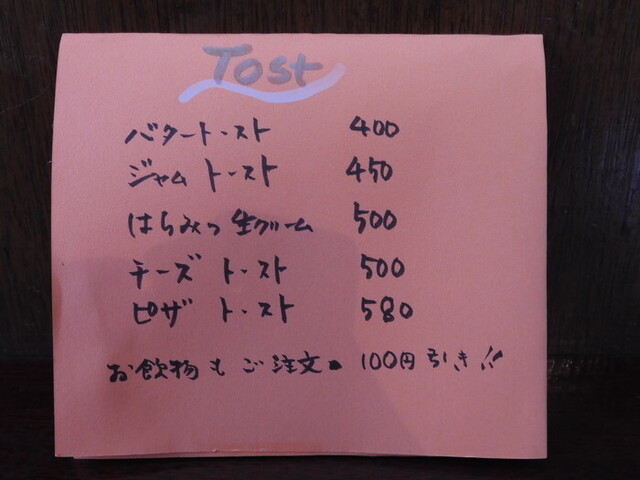 Tost
バタートースト 400
ジャムトースト 450
はちみつ生クリーム 500
チーズトースト 500
ピザトースト 580
お飲物もご注文で 100円引き!!